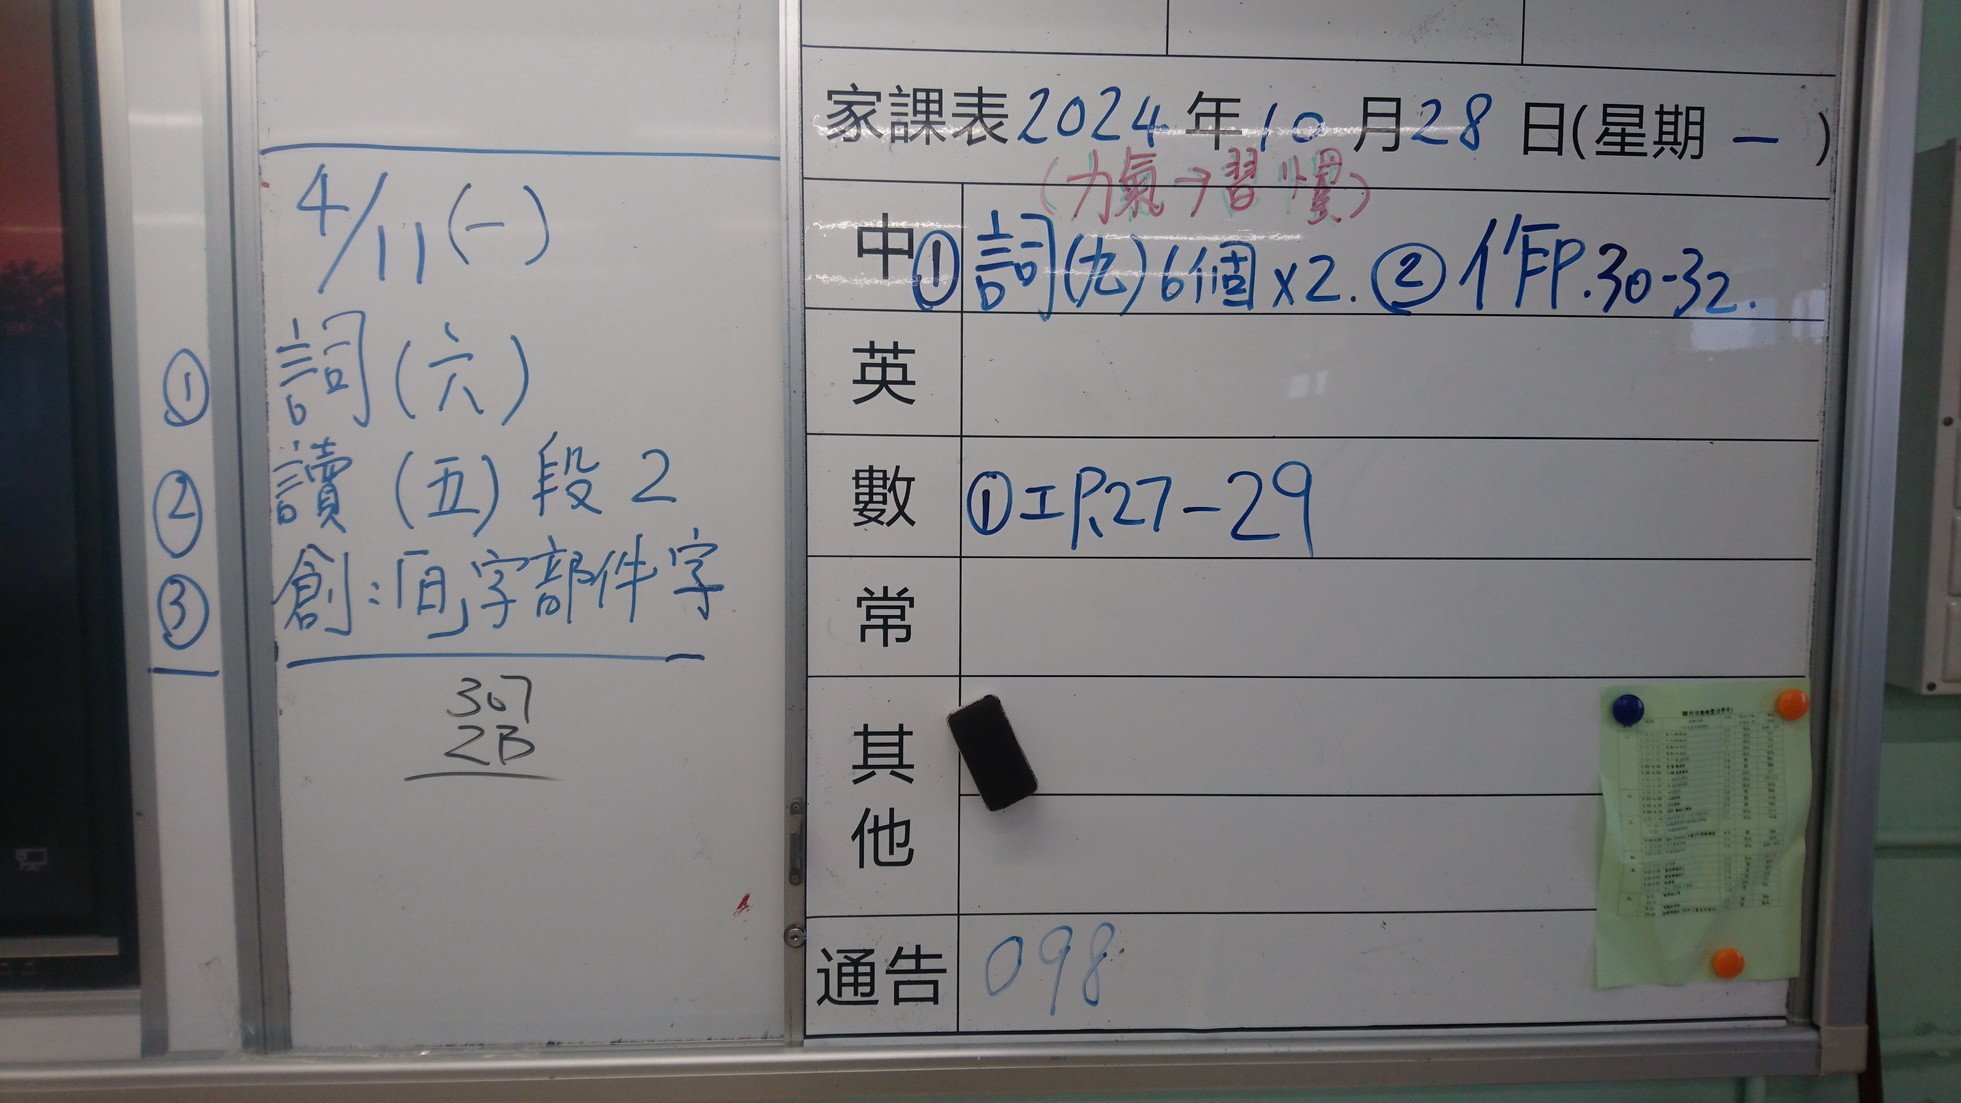 4/11(一)
① 詞(六)
② 讀(五)段2
③ 創:「甬」字部件字
307
2B
家課表2024年10月28日(星期一)
(力氣→習慣)
中 ①詞(九)6個x2. ②作P.30-32.
英
數 ①工P.27-29
常
其他
通告 098